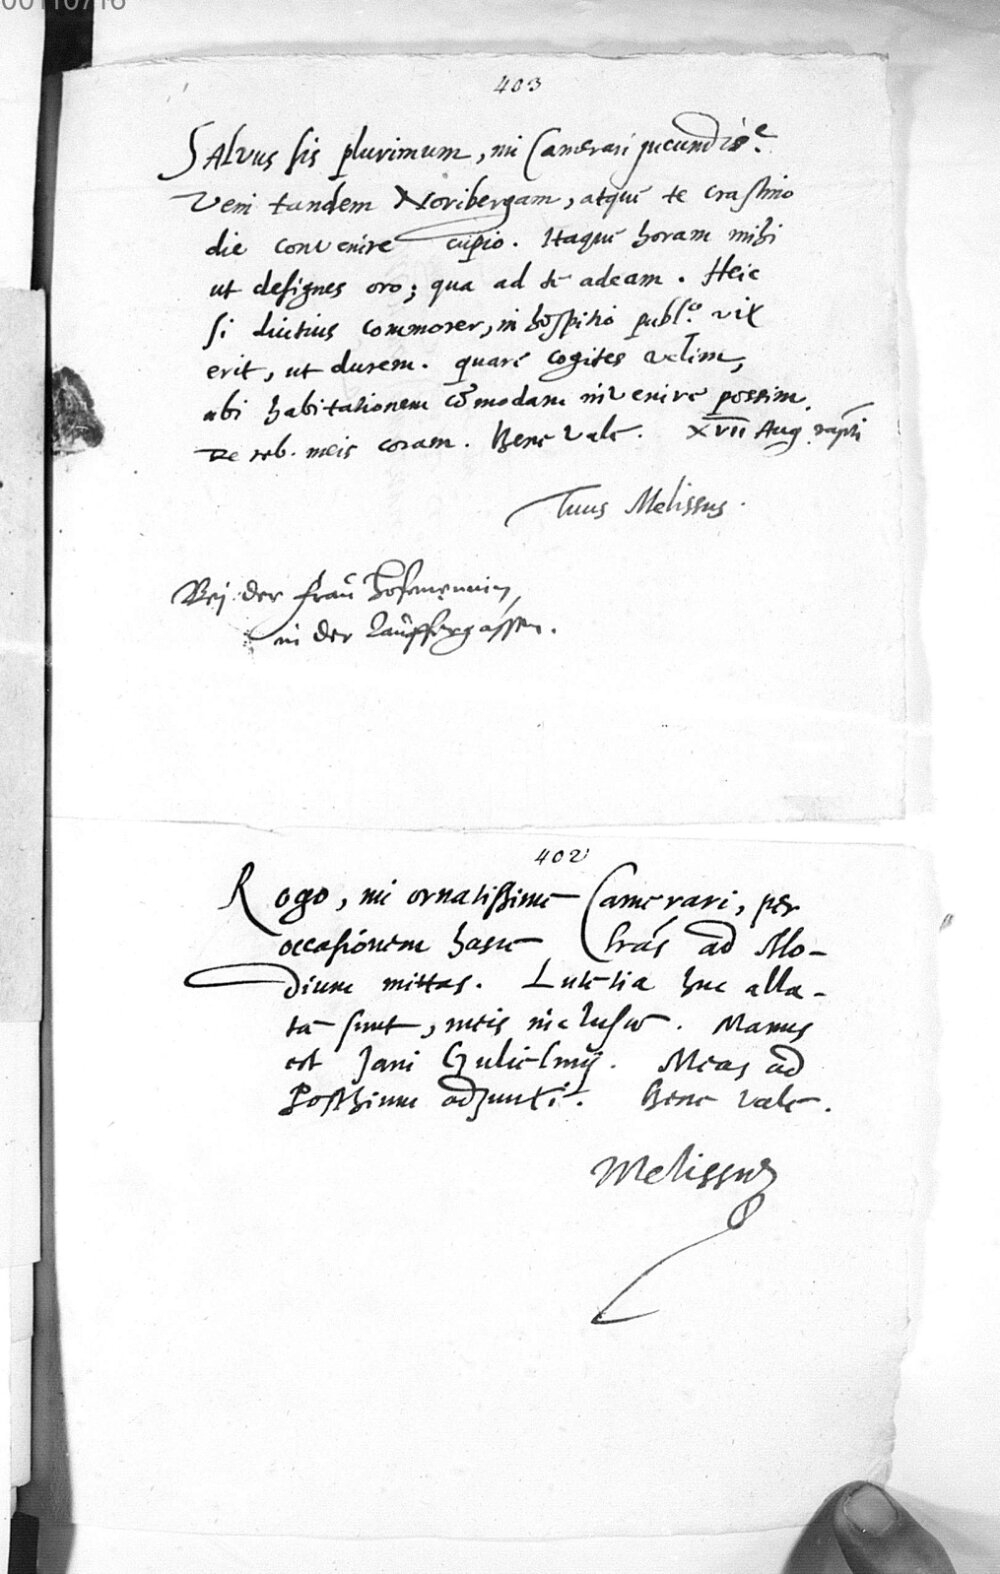 00110716
403
Salvus sis plurimum, mi Camerari jucundisse.
Veni tandem Noribergam, atque te crastino
die convenire cupio. Itaque horam mihi
ut designes oro; qua ad te adeam. Heic
si diutius commorer, in hospitio publco. vix
erit, ut durem. quare cogites velim,
ubi habitationem cōmodam invenire possim.
De reb. meis coram. Bene Vale. XVII Aug. raptī
Tuus Melissus.
Bej der Frau
in der
402
Rogo, mi ornatissime Camerari, per
occasionem hasce Lrās ad Mo-
dium mittas. Lutetia huc alla-
tae sunt, meis inclusae. Manus
est Jani Gulielmij. Meas ad
Posthium adjunxi. Bene vale.
Melissus